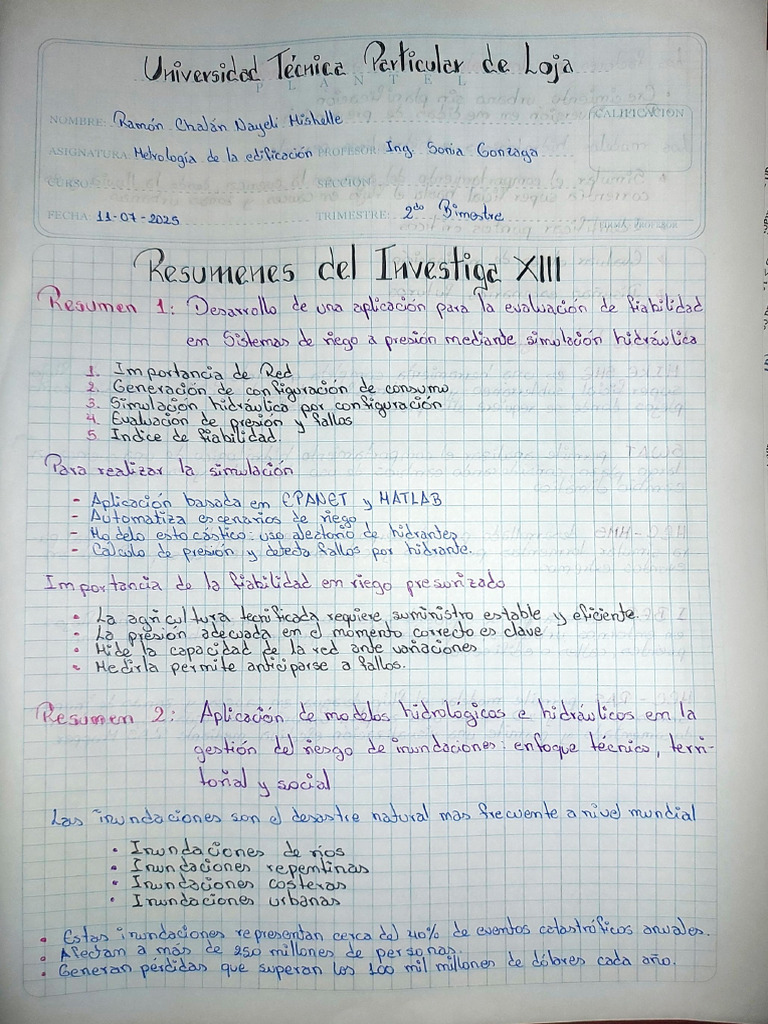 Universidad Técnica Particular de Loja
PLANTEL
NOMBRE: Ramón Chalán Nayeli Mishelle
CALIFICACIÓN
ASIGNATURA: Metrología de la edificación PROFESOR: Ing. Sonia Gonzaga
CURSO: SECCIÓN:
FECHA: 11-07-2025 TRIMESTRE: 2do Bimestre
Resumenes del Investiga XIII
Resumen 1: Desarrollo de una aplicación para la evaluación de fiabilidad
en Sistemas de riego a presión mediante simulación hidráulica
1. Importancia de Red
2. Generación de configuración de consumo
3. Simulación hidráulica por configuración
4. Evaluación de presión y fallos
5. Indice de fiabilidad.
Para realizar la simulación
- Aplicación basada en EPANET y MATLAB
- Automatiza escenarios de riego
- Modelo estocástico: uso aleatorio de hidrantes
- Calculo de presión y detecta fallos por hidrante.
Importancia de la fiabilidad en riego presurizado
• La agricultura tecnificada requiere suministro estable y eficiente.
• La presión adecuada en el momento correcto es clave
• Mide la capacidad de la red ante variaciones
• Medirla permite anticiparse a fallos.
Resumen 2: Aplicación de modelos hidrológicos e hidráulicos en la
gestión del riesgo de inundaciones: enfoque técnico, terri-
torial y social
Las inundaciones son el desastre natural mas frecuente a nivel mundial
• Inundaciones de ríos
• Inundaciones repentinas
• Inundaciones costeras
• Inundaciones urbanas
• Estas inundaciones representan cerca del 40% de eventos catastróficos anuales.
• Afectan a más de 250 millones de personas.
• Generan pérdidas que superan los 100 mil millones de dólares cada año.